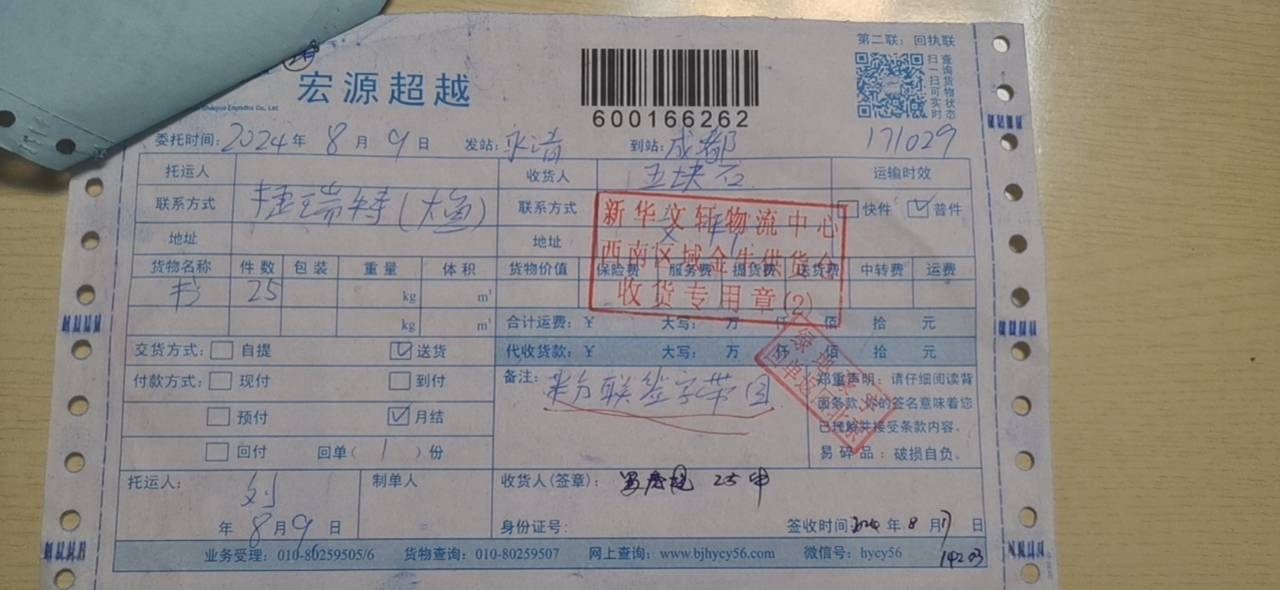 第二联：回执联
宏源超越
600166262
扫一扫可实时
查询货物状态
委托时间：2024年8月9日 发站： 到站：成都 171029
托运人 收货人 五块石 运输时效
联系方式 捷瑞特(大鱼) 联系方式 快件 普件
地址 地址
新华文轩物流中心
西南区域金牛供货仓
收货专用章(2)
货物名称 件数 包装 重量 体积 货物价值 保险费 服务费 提货费 送货费 中转费 运费
书 25 kg m³
kg m³
合计运费：￥ 大写： 万 仟 佰 拾 元
交货方式： 自提 送货 代收货款：￥ 大写： 万 仟 佰 拾 元
付款方式： 现付 到付 备注： 粉联签字带回
预付 月结
回付 回单(1)份
郑重声明：请仔细阅读背
面条款，你的签名意味着您
已理解并接受条款内容。
易碎品：破损自负。
托运人： 刘 制单人 收货人(签章)： 25件
年8月9日 身份证号： 签收时间2024年8月17日
14203
业务受理：010-80259505/6 货物查询：010-80259507 网上查询：www.bjhycy56.com 微信号：hycy56